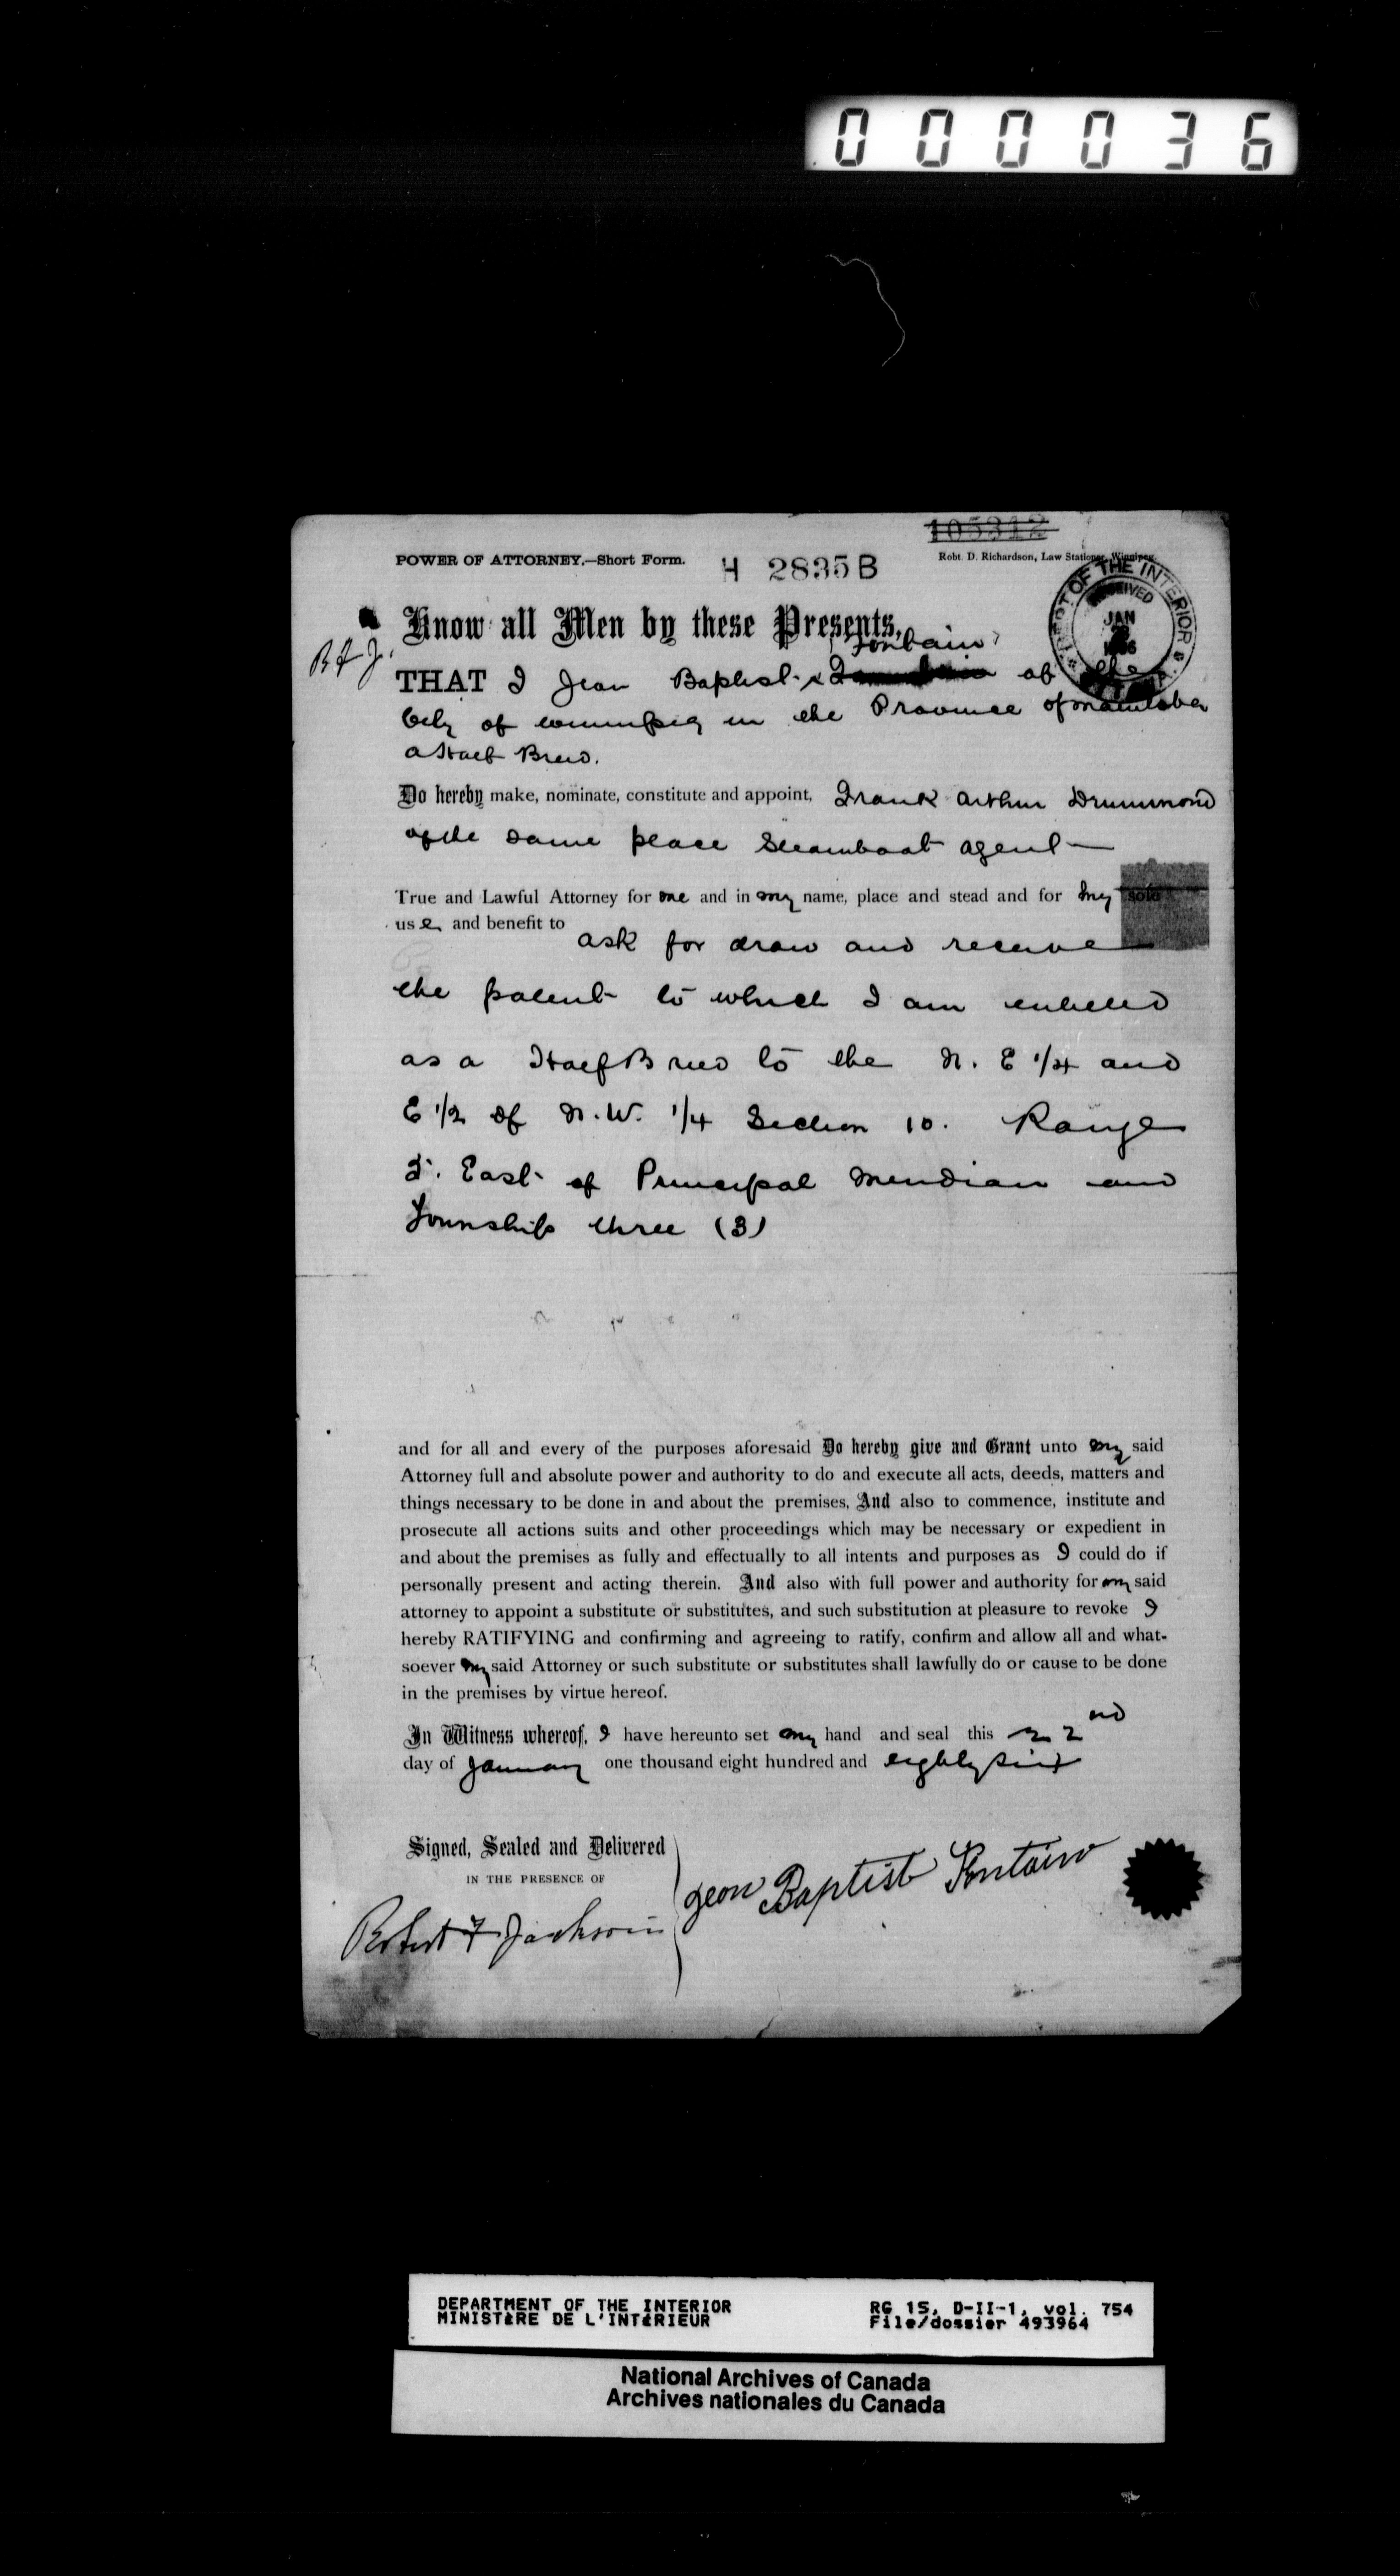 000036
105312
POWER OF ATTORNEY.—Short Form.
H 2835 B
Robt. D. Richardson, Law Stationer, Winnipeg.
DEPT OF THE INTERIOR
RECEIVED
JAN
1886
OTTAWA
Know all Men by these Presents,
Fontain
R F J.
THAT I Jean Baptist x of the
City of Winnipeg in the Province of Manitoba
a Half Breed.
Do hereby make, nominate, constitute and appoint, Frank Arthur Drummond
of the same place Steamboat agent —
True and Lawful Attorney for me and in my name, place and stead and for my sole
use and benefit to
ask for draw and receive
the patent to which I am entitled
as a Half Breed to the N. E 1/4 and
E 1/2 of N.W. 1/4 Section 10. Range
East of Principal Meridian and
Township three (3)
and for all and every of the purposes aforesaid Do hereby give and Grant unto my said
Attorney full and absolute power and authority to do and execute all acts, deeds, matters and
things necessary to be done in and about the premises, And also to commence, institute and
prosecute all actions suits and other proceedings which may be necessary or expedient in
and about the premises as fully and effectually to all intents and purposes as I could do if
personally present and acting therein. And also with full power and authority for my said
attorney to appoint a substitute or substitutes, and such substitution at pleasure to revoke I
hereby RATIFYING and confirming and agreeing to ratify, confirm and allow all and what-
soever my said Attorney or such substitute or substitutes shall lawfully do or cause to be done
in the premises by virtue hereof.
In Witness whereof, I have hereunto set my hand and seal this 22nd
day of January one thousand eight hundred and eighty six
Signed, Sealed and Delivered
IN THE PRESENCE OF
Robert F Jackson
Jean Baptist Fontain
DEPARTMENT OF THE INTERIOR
MINISTÈRE DE L'INTÉRIEUR
RG 15, D-II-1, vol. 754
File/dossier 493964
National Archives of Canada
Archives nationales du Canada